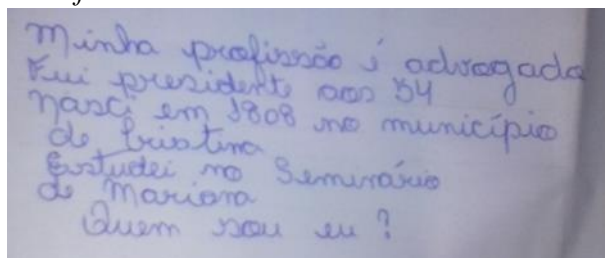 Minha profissão é advogado
Fui presidente aos 54
Nasci em 1808 no município
de Cristina
Estudei no Seminário
de Mariana
Quem sou eu?